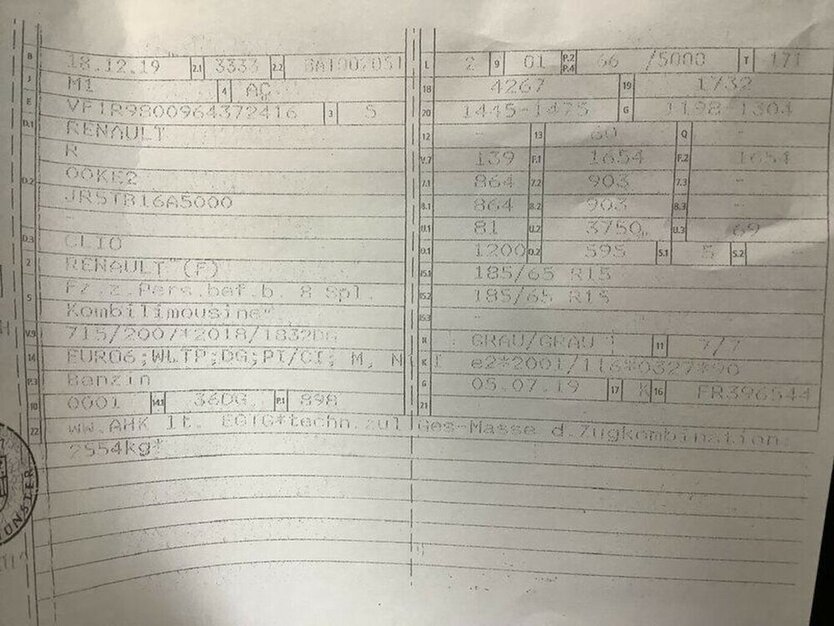 B 18.12.19 2.1 3333 2.2 L 2 9 01 P.2 P.4 66 /5000 T 171
J M1 4 AC 18 4267 19 1732
E VF1R9800964372416 3 5 20 1445-1475 G 1198-1304
D.1 RENAULT 12 - 13 60 Q -
R V.7 139 F.1 1654 F.2 1654
D.2 OOKE2 7.1 864 7.2 903 7.3 -
JR5TB16A5000 8.1 864 8.2 903 8.3 -
U.1 81 U.2 3750 U.3 69
D.3 CLIO O.1 1200 O.2 595 S.1 5 S.2 -
2 RENAULT (F) 15.1 185/65 R15
5 Fz.z.Pers.bef.b. 8 Spl. 15.2 185/65 R15
Kombilimousine 15.3 -
V.9 715/2007*2018/1832DG R GRAU/GRAU 11 7/7
14 EURO6;WLTP;DG;PI/CI; M, N I K e2*2001/116*0327*90
P.3 Benzin 6 05.07.19 17 K 16 FR396544
10 0001 14.1 36DG P.1 898 21
22 ww.AHK lt. EGTG*techn.zul Ges-Masse d.Zugkombination:
2554kg*